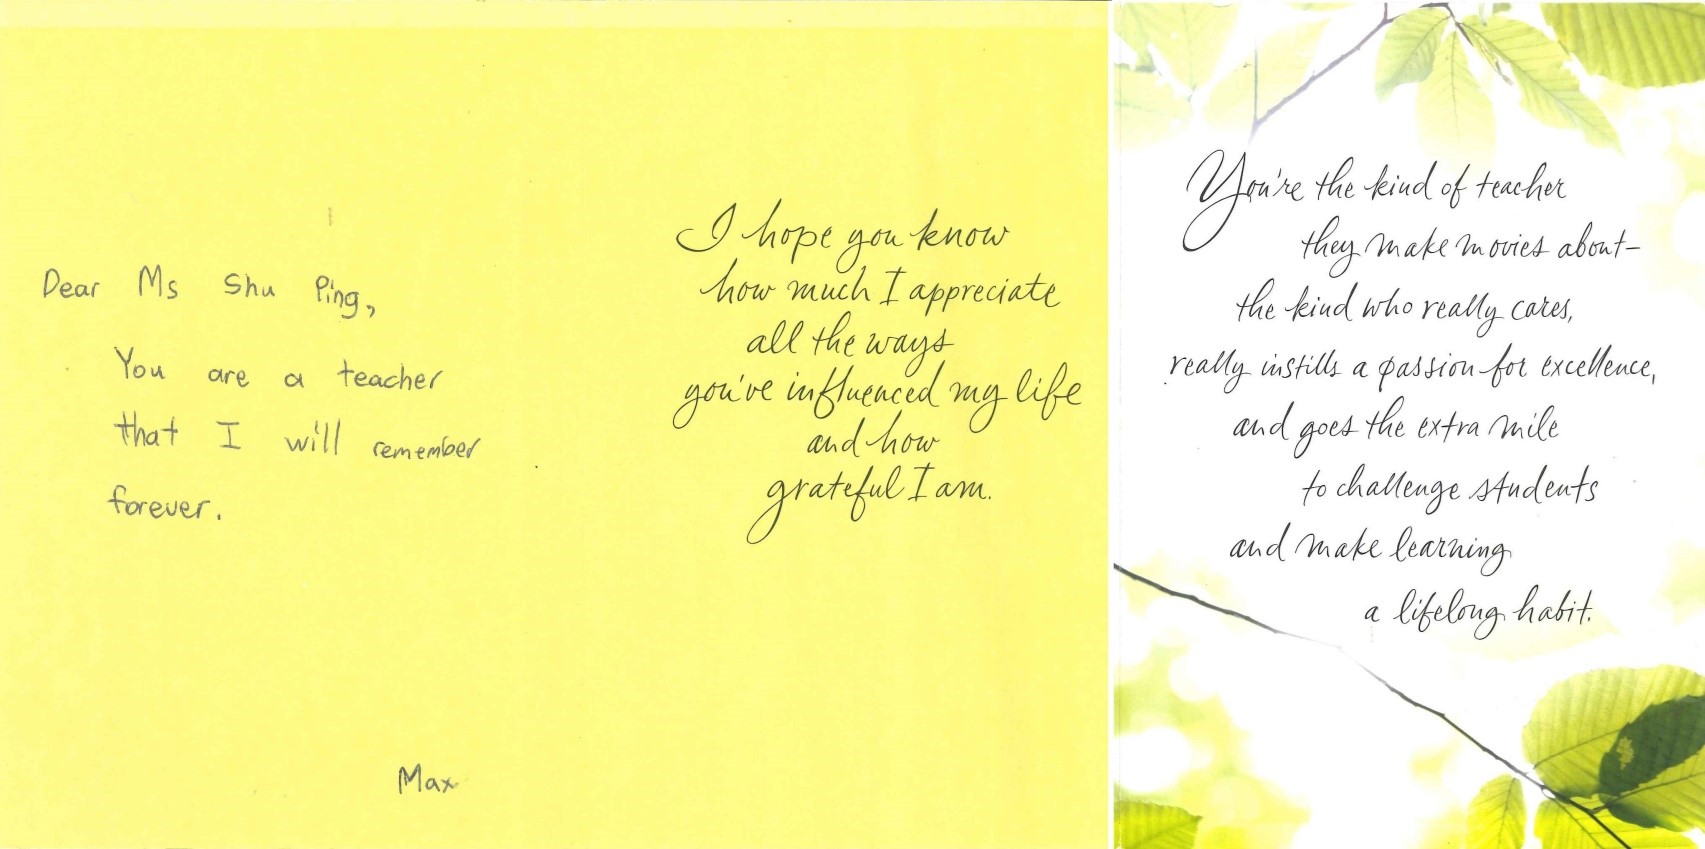 Dear Ms Shu Ping,
You are a teacher
that I will remember
forever.
Max
I hope you know
how much I appreciate
all the ways
you've influenced my life
and how
grateful I am.
You're the kind of teacher
they make movies about—
the kind who really cares,
really instills a passion for excellence,
and goes the extra mile
to challenge students
and make learning
a lifelong habit.